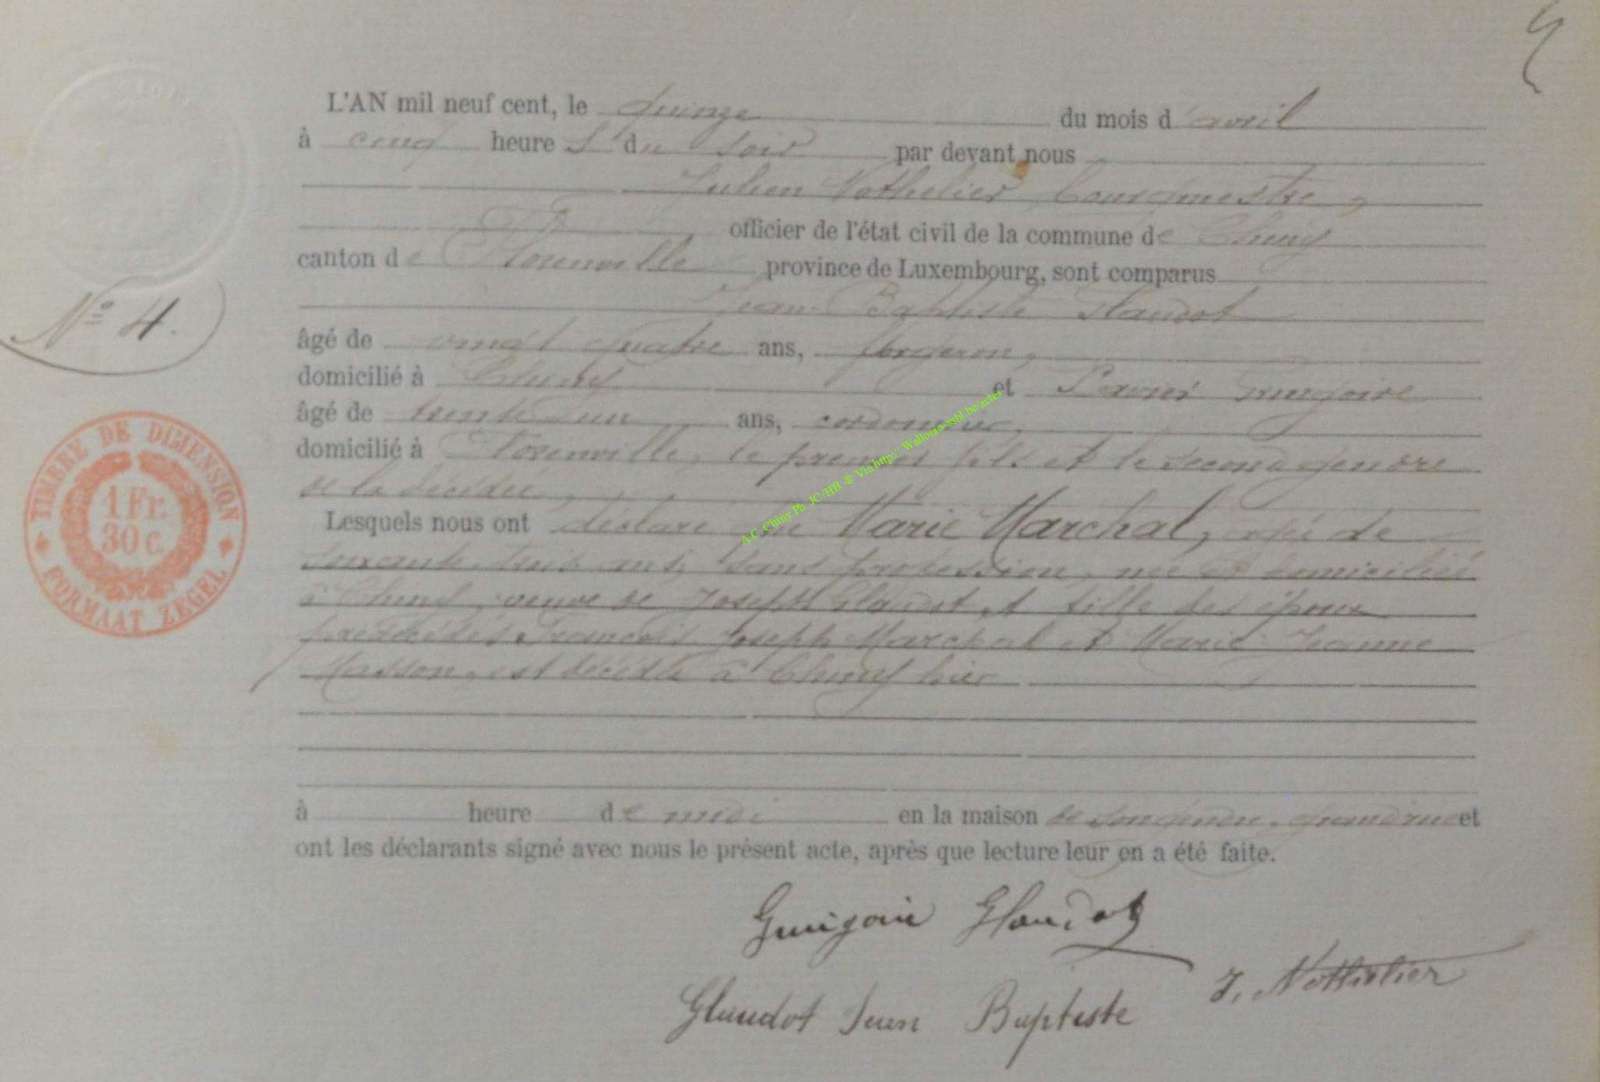 L'AN mil neuf cent, le quinze du mois d'avril
à cinq heures du soir par devant nous
Julien Nothelier Bourgmestre,
officier de l'état civil de la commune de Chiny
canton de Florenville province de Luxembourg, sont comparus
Jean Baptiste Glaudot
âgé de vingt quatre ans, forgeron,
domicilié à Chiny et
âgé de trente un ans, cordonnier,
domicilié à Florenville, le premier fils et le second gendre
de la décédée
Lesquels nous ont déclaré que Marie Marchal, agée de
soixante trois ans, sans profession, née et domiciliée
à Chiny, veuve de Joseph Glaudot et fille des époux
François Joseph Marchal et Marie Jeanne
Masson, est décédée à Chiny hier
à heure de midi en la maison de son gendre, grand'rue et
ont les déclarants signé avec nous le présent acte, après que lecture leur en a été faite.
N° 4.
TIMBRE DE DIMENSION
1 Fr.
30 c.
FORMAAT ZEGEL
Glaudot
J. Nothelier
Glaudot Jean Baptiste